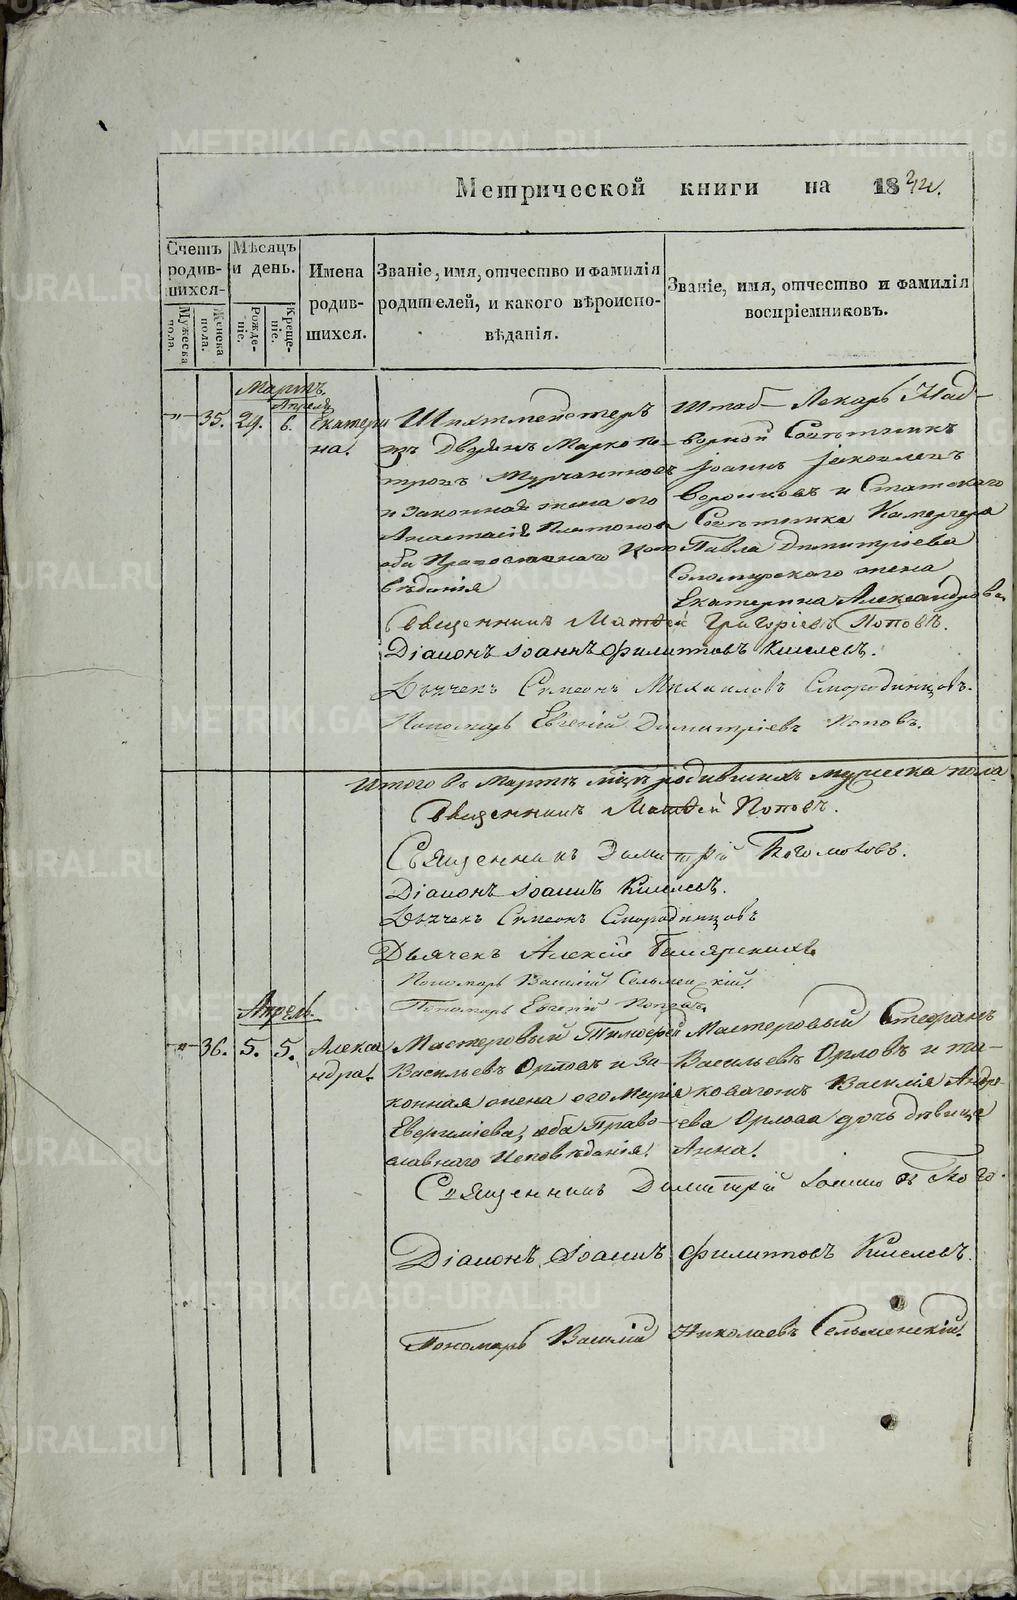 Метрической книги на 18
Счетъ родив- шихся.
Мѣсяцъ и день.
Имена родив- шихся.
Званіе, имя, отчество и фамилія родителей, и какого вѣроиспо- вѣданія.
Званіе, имя, отчество и фамилія воспріемниковъ.
Мужеска пола.
Женска пола.
Рожде- ніе.
Креще- ніе.
Мартъ.
Апреля
35. 29. 6.
Екатери
на.
Шихтмейстеръ
изъ Дворянъ Марко Пе-
тровъ
и законная жена его
Анастасія Платонова
оба Православнаго Испо
вѣданія
Штаб- Лекарь Над-
ворной Совѣтникъ
Іоаннъ Іаковлевъ
и Статскаго
Совѣтника Камергера
Павла Димитріева
Соломирскаго жена
Екатерина Александрова
Священникъ Матѳей Григоріевъ Поповъ.
Діаконъ Іоаннъ Филипповъ Киселевъ.
Дьячекъ Симеонъ Михаиловъ Смородинцовъ.
Пономарь Евгеній Димитріевъ Поповъ.
Итого въ Мартѣ мцѣ родившихъ мужеска пола
Священникъ Матѳей Поповъ.
Священникъ Димитрій
Діаконъ Іоаннъ Киселевъ.
Дьячекъ Симеонъ Смородинцовъ
Дьячекъ Алексій
Пономарь Василій Сельменскій.
Пономарь Евгеній Поповъ.
Апрель.
36. 5. 5.
Алекса
ндра.
Мастеровый Тимоѳей
Васильевъ Орловъ и за-
конная жена его Марія
Евѳиміева, оба Право-
славнаго Исповѣданія.
Мастеровый Стефанъ
Васильевъ Орловъ и та-
коваго жъ Василія Андре
ева Орлова дочь дѣвица
Анна.
Священникъ Димитрій Іоанновъ
Діаконъ Іоаннъ Филипповъ Киселевъ.
Пономарь Василій Николаевъ Сельменскій.
METRIKI.GASO-URAL.RU